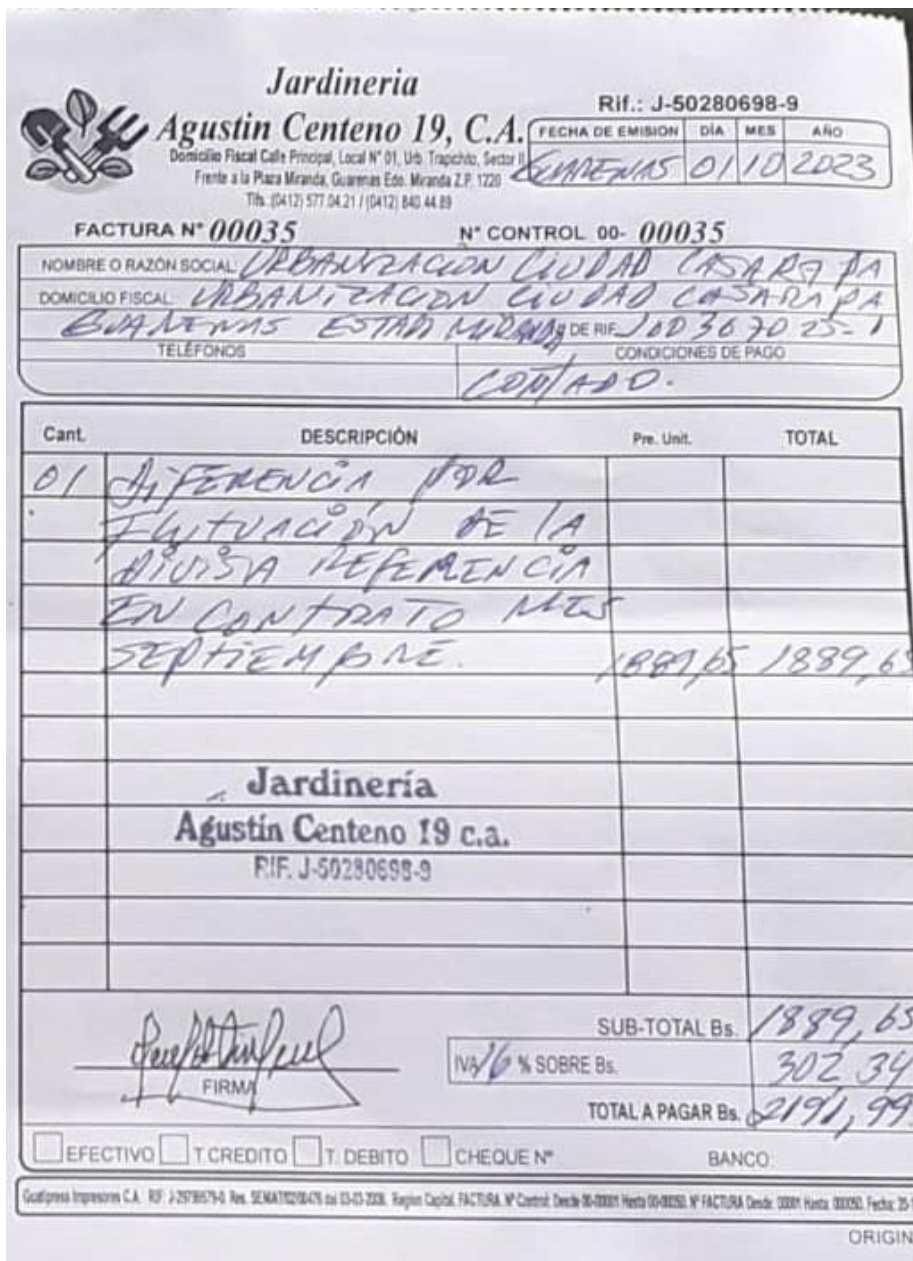 Jardineria
Agustin Centeno 19, C.A.
Domicilio Fiscal Calle Principal, Local N° 01, Urb. Trapichito, Sector II
Frente a la Plaza Miranda, Guarenas Edo. Miranda Z.P. 1220
Tlfs.:(0412) 577.04.21 / (0412) 840.44.89
Rif.: J-50280698-9
FECHA DE EMISION DÍA MES AÑO
GUARENAS 01 10 2023
FACTURA N° 00035 N° CONTROL 00- 00035
NOMBRE O RAZÓN SOCIAL: URBANIZACION CIUDAD CASARAPA
DOMICILIO FISCAL: URBANIZACION CIUDAD CASARAPA
GUARENAS ESTADO MIRANDA N° DE RIF J00367025-1
TELÉFONOS CONDICIONES DE PAGO
CONTADO.
Cant. DESCRIPCIÓN Pre. Unit. TOTAL
01 DIFERENCIA POR
FLUTUACIÓN DE LA
DIVISA REFERENCIA
EN CONTRATO MES
SEPTIEMBRE. 1889,65 1889,65
Jardinería
Agustín Centeno 19 c.a.
RIF. J-50280698-9
SUB-TOTAL Bs. 1889,65
IVA 16 % SOBRE Bs. 302,34
FIRMA
TOTAL A PAGAR Bs. 2191,99
EFECTIVO T. CREDITO T. DEBITO CHEQUE N° BANCO:
Impresores C.A. RIF: Region Capital. FACTURA. N° Control: Desde 00-00001 Hasta 00-00050. N° FACTURA Desde: 00001 Hasta: 000050. Fecha:
ORIGIN